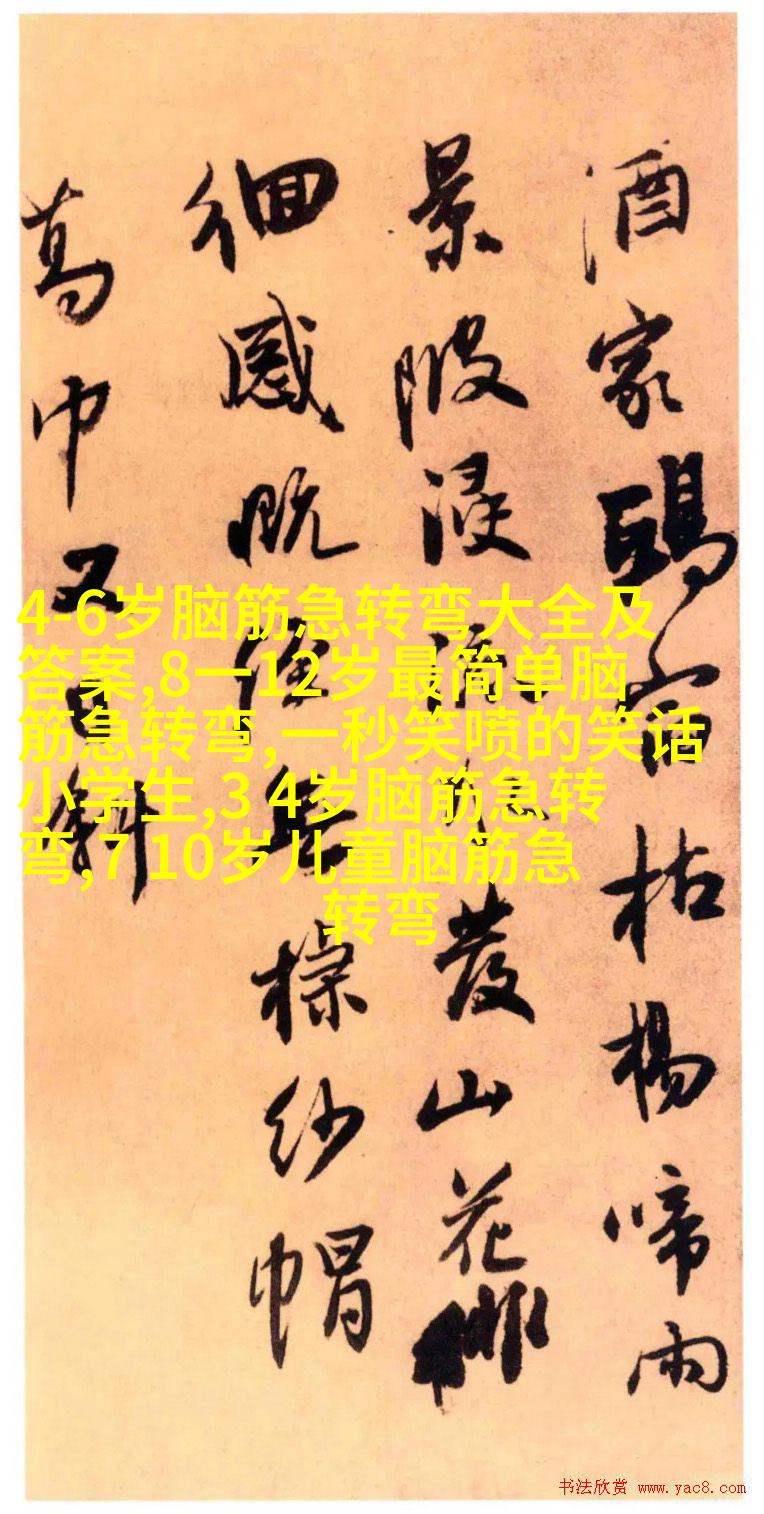 酒家枯楊啼雨
景陂浸發山花
徊感既
紗帽
葛巾又斜
4-6岁脑筋急转弯大全及
答案,8一12岁最简单脑
筋急转弯,一秒笑喷的笑话
小学生,3 4岁脑筋急转
弯,7 10岁儿童脑筋急
转弯
书法欣赏 www.yac8.com